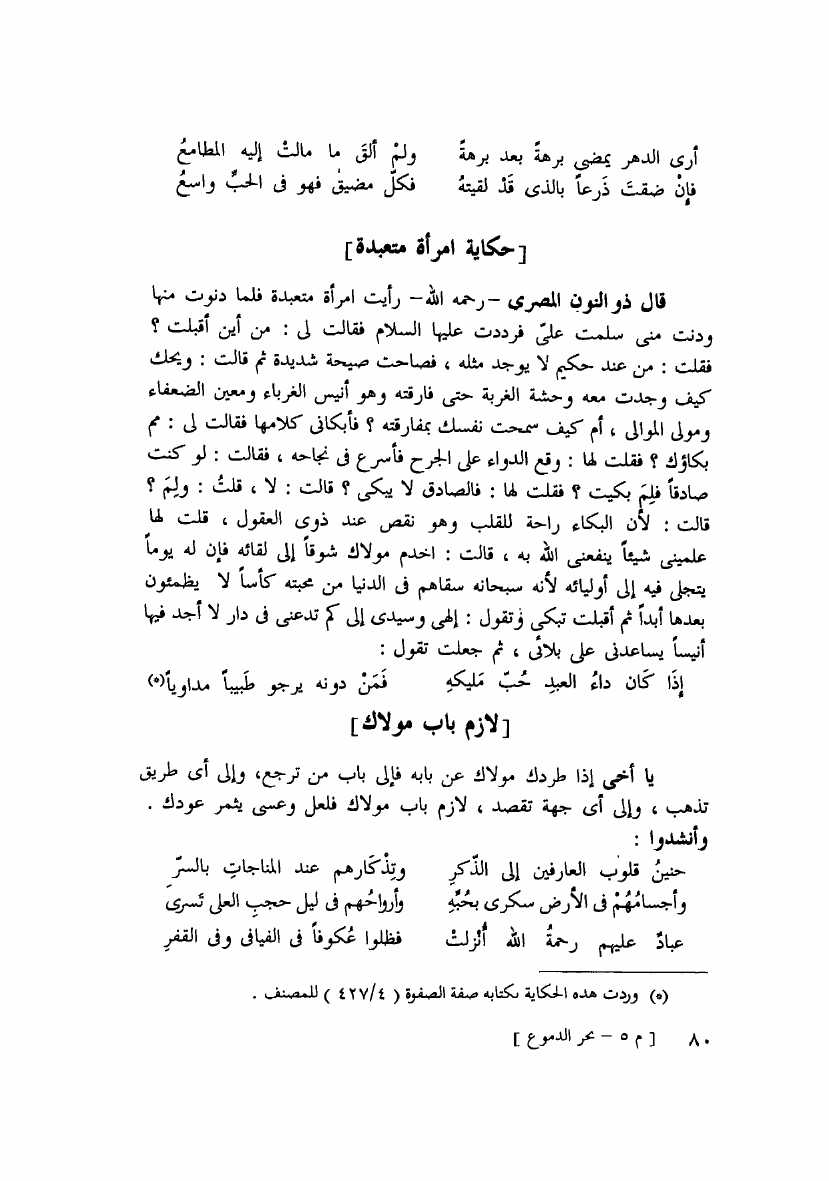 أرى الدهر يمضى برهةً بعد برهةً ولمْ ألقَ ما مالتْ إليه المطامعُ
فإنْ ضقتَ ذَرعاً بالذى قَدْ لقيتهُ فكلّ مضيقٍ فهو فى الحبِّ واسعُ
[حكاية امرأة متعبدة]
قال ذو النون المصرى –رحمه الله– رأيت امرأة متعبدة فلما دنوت منها
ودنت منى سلمت علىّ فرددت عليها السلام فقالت لى : من أين أقبلت ؟
فقلت : من عند حكيم لا يوجد مثله ، فصاحت صيحة شديدة ثم قالت : ويحك
كيف وجدت معه وحشة الغربة حتى فارقته وهو أنيس الغرباء ومعين الضعفاء
ومولى الموالى ، أم كيف سمحت نفسك بمفارقته ؟ فأبكانى كلامها فقالت لى : مم
بكاؤك ؟ فقلت لها : وقع الدواء على الجرح فأسرع فى نجاحه ، فقالت : لو كنت
صادقاً فلِمَ بكيت ؟ فقلت لها : فالصادق لا يبكى ؟ قالت : لا ، قلتُ : ولِمَ ؟
قالت : لأن البكاء راحة للقلب وهو نقص عند ذوى العقول ، قلت لها
علمينى شيئاً ينفعنى الله به ، قالت : اخدم مولاك شوقاً إلى لقائه فإن له يوماً
يتجلى فيه إلى أوليائه لأنه سبحانه سقاهم فى الدنيا من محبته كأساً لا يظمئون
بعدها أبداً ثم أقبلت تبكى وتقول : إلهى وسيدى إلى كم تدعنى فى دار لا أجد فيها
أنيساً يساعدنى على بلائى ، ثم جعلت تقول :
إذَا كَان داءُ العبدِ حُبّ مَليكهِ فَمَنْ دونه يرجو طَبيباً مداوياً(٥)
[لازم باب مولاك]
يا أخى إذا طردك مولاك عن بابه فإلى باب من ترجع، وإلى أى طريق
تذهب ، وإلى أى جهة تقصد ، لازم باب مولاك فلعل وعسى يثمر عودك .
وأنشدوا :
حنينُ قلوب العارفين إلى الذّكرِ وتِذْكارهم عند المناجاتِ بالسرّ
وأجسامُهُمْ فى الأرض سكرى بحُبِّهِ وأرواحُهم فى ليل حجبِ العلى تَسرى
عبادٌ عليهم رحمةُ الله أُنْزلتْ فظلوا عُكوفاً فى الفيافى وفى القفرِ
(٥) وردت هذه الحكاية بكتابه صفة الصفوة ( ٤٢٧/٤ ) للمصنف .
٨٠ [ م ٥ – بحر الدموع ]